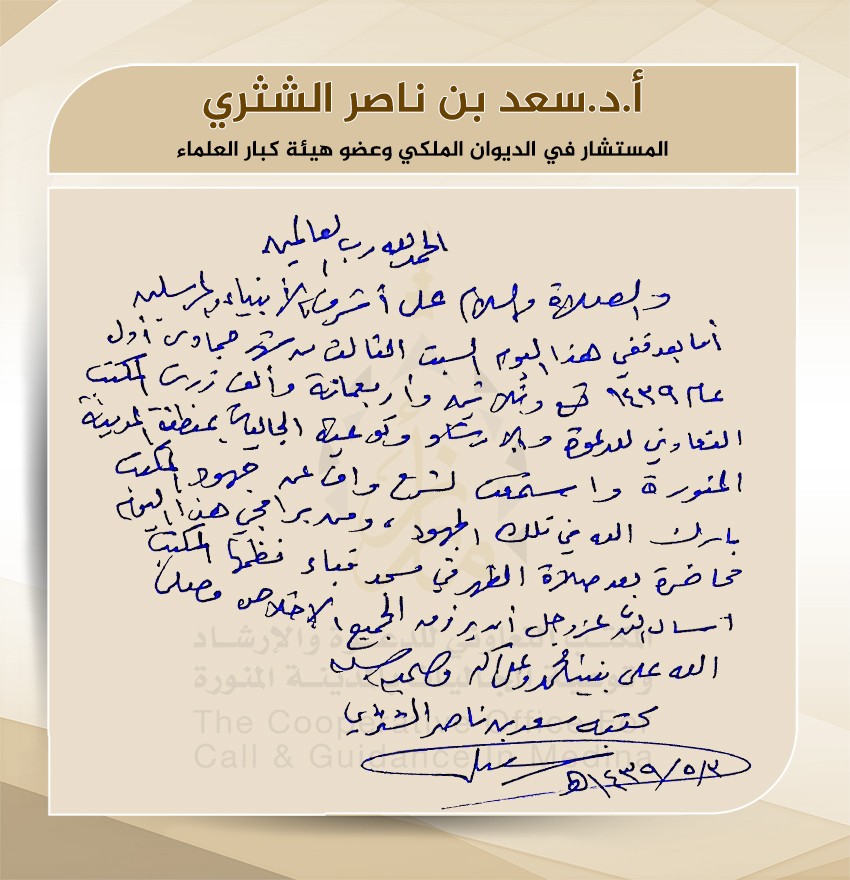 أ.د.سعد بن ناصر الشثري
المستشار في الديوان الملكي وعضو هيئة كبار العلماء
الحمد لله رب العالمين
والصلاة والسلام على أشرف الأنبياء والمرسلين
أما بعد ففي هذا اليوم السبت الثالث من شهر جمادى أول
عام ١٤٣٩ تسع وثلاثين وأربعمائة وألف زرت المكتب
التعاوني للدعوة والارشاد وتوعية الجاليات بمنطقة المدينة
المنورة واستمعت لشرح واف عن جهود المكتب
بارك الله في تلك الجهود ، ومن برامجي هذا اليوم
محاضرة بعد صلاة الظهر في مسجد قباء نظمها المكتب
اسال الله عز وجل أن يرزق الجميع الإخلاص وصلى
الله على نبينا محمد وعلى آله وصحبه وسلم
كتبه سعد بن ناصر الشثري
١٤٣٩/٥/٣هـ
المكتب التعاوني للدعوة والإرشاد
وتوعية الجاليات بالمدينة المنورة
The Cooperative Office For
Call & Guidance in Medina